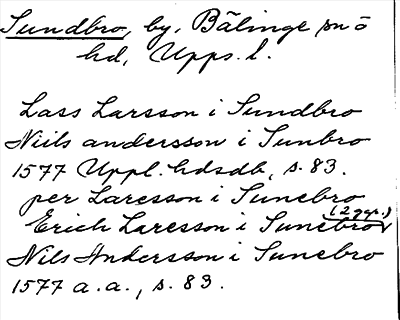 Sundbro, by, Bälinge sn o
hd, Upps. l.
Lass Larsson i Sundbro
Niils andersson i Sunbro
1577 Uppl. hdsdb, s. 83.
per Laresson i Sunebro
Erich Laresson i Sunebro (2 ggr.)
Nils Andersson i Sunebro
1577 a. a., s. 83.